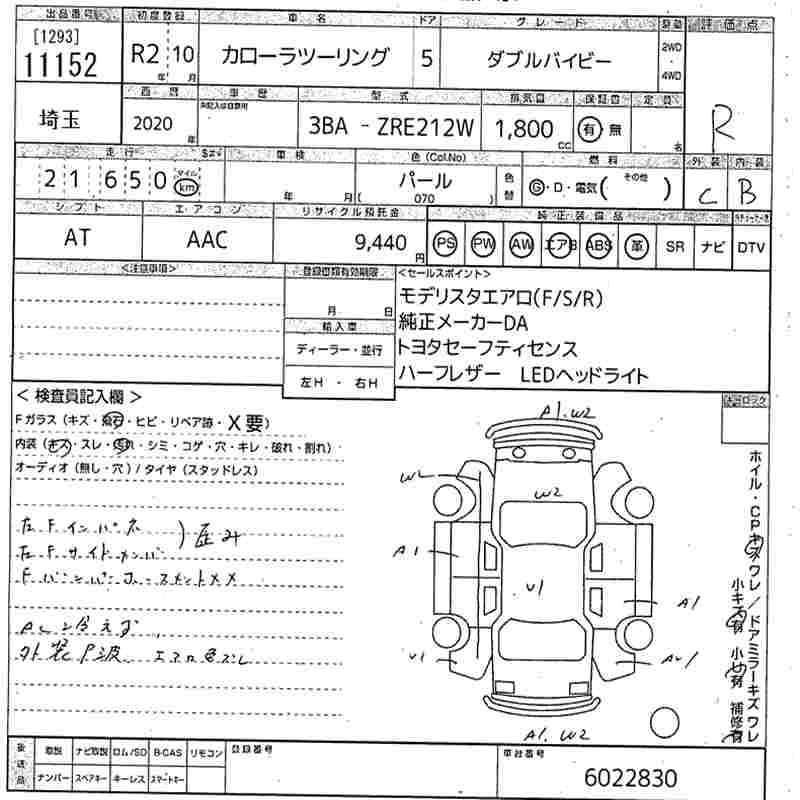 出品番号 初度登録 車名 ドア グレード 駆動 評価点
[1293]
11152 R2 10 カローラツーリング 5 ダブルバイビー 2WD ・ 4WD
年 月
西暦 車歴 型式 排気量 保証書 定員 R
埼玉 2020 年 3BA - ZRE212W 1,800 CC 有 無 名
走行 車検 色(Col.No) 燃料 外装 内装
21650 マイル km 年 月 パール 色替 G・D・電気( その他 ) C B
( 070 )
シフト エアコン リサイクル預託金 純正装備品
AT AAC 9,440 円 PS PW AW エアB ABS 革 SR ナビ DTV
<注意事項> 登録書類有効期限 <セールスポイント>
月 日 モデリスタエアロ(F/S/R)
輸入車 純正メーカーDA
ディーラー・並行 トヨタセーフティセンス
左H ・ 右H ハーフレザー LEDヘッドライト
< 検査員記入欄 >
Fガラス(キズ・飛石・ヒビ・リペア跡・X要)
内装(キズ・スレ・汚れ・シミ・コゲ・穴・キレ・破れ・割れ)
オーディオ(無し・穴)/タイヤ(スタッドレス)
右Fインパネ
右Fサイドメンバ ) 歪み
Fバンパーホースメントメメ
AC冷えず
外装P波 エアロ色ズレ
A1.W2
W2
W2
A1
U1
A1
U1
AU1
A1.W2
ホイル・CPキズワレ/ドアミラーキズワレ
小キズ有 小凹有 補修有
後送品 取説 ナビ取説 ロム/SD B-CAS リモコン 登録番号 車台番号
ナンバー スペアキー キーレス スマートキー 6022830